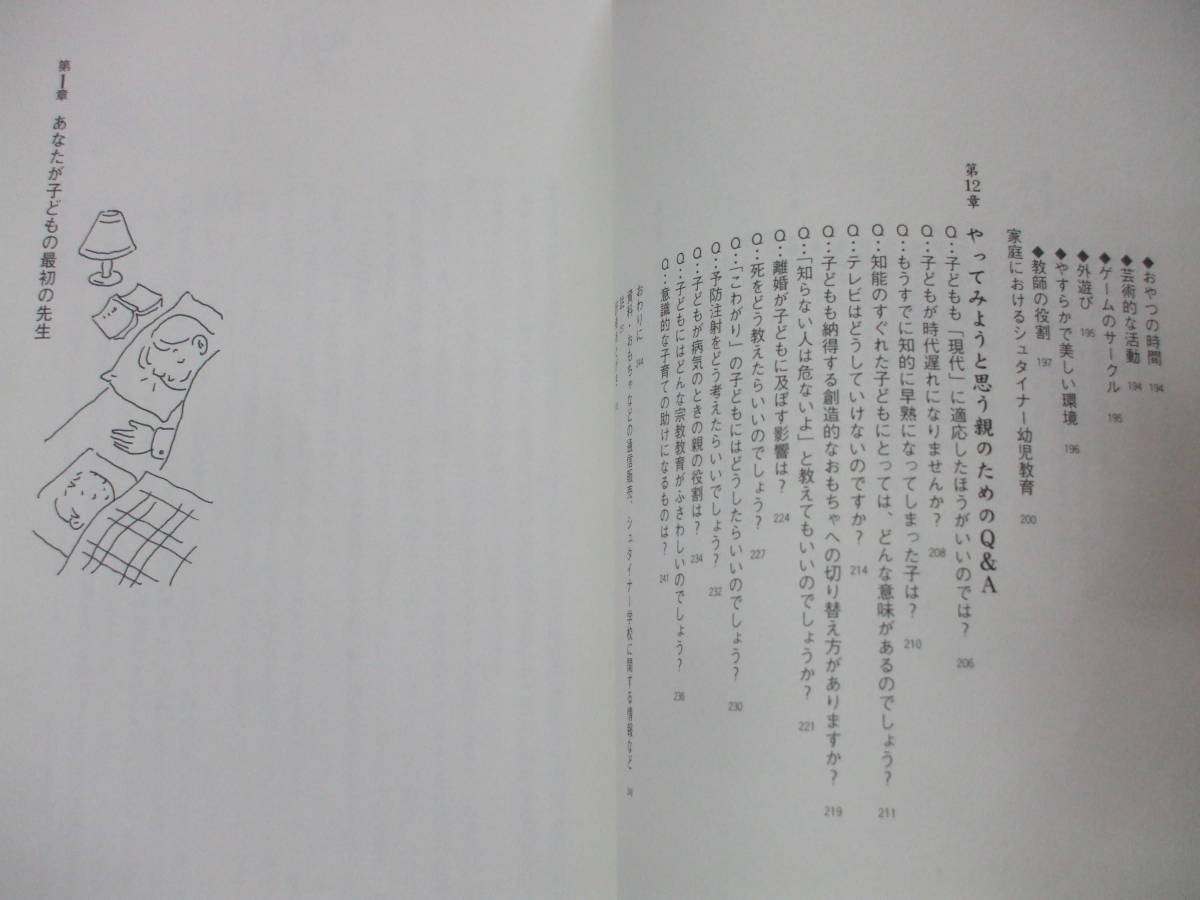 ◆おやつの時間 194
◆芸術的な活動 194
◆ゲームのサークル 195
◆外遊び 195
◆やすらかで美しい環境 196
◆教師の役割 197
家庭におけるシュタイナー幼児教育 200
第12章 やってみようと思う親のためのQ&A
Q：子どもも「現代」に適応したほうがいいのでは？ 206
Q：子どもが時代遅れになりませんか？ 208
Q：もうすでに知的に早熟になってしまった子は？ 210
Q：知能のすぐれた子どもにとっては、どんな意味があるのでしょう？ 211
Q：テレビはどうしていけないのですか？ 214
Q：子どもも納得する創造的なおもちゃへの切り替え方がありますか？ 219
Q：「知らない人は危ないよ」と教えてもいいのでしょうか？ 221
Q：離婚が子どもに及ぼす影響は？ 224
Q：死をどう教えたらいいのでしょう？ 227
Q：「こわがり」の子どもにはどうしたらいいのでしょう？ 230
Q：予防注射をどう考えたらいいでしょう？ 232
Q：子どもが病気のときの親の役割は？ 234
Q：子どもにはどんな宗教教育がふさわしいのでしょう？ 236
Q：意識的な子育ての助けになるものは？ 241
おわりに 244
資料・おもちゃなどの通信販売、シュタイナー学校に関する情報など
第1章 あなたが子どもの最初の先生